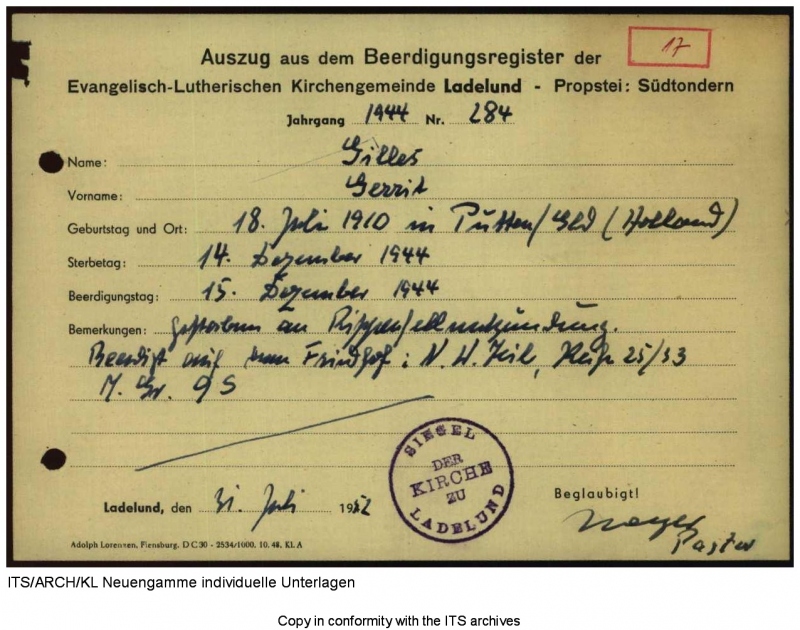 17
Auszug aus dem Beerdigungsregister der
Evangelisch-Lutherischen Kirchengemeinde Ladelund - Propstei: Südtondern
Jahrgang 1944 Nr. 284
Name: Gilles
Vorname: Gerrit
Geburtstag und Ort: 18. Juli 1910 in Putten/Gld (Holland)
Sterbetag: 14. Dezember 1944
Beerdigungstag: 15. Dezember 1944
Bemerkungen: gestorben an Rippenfellentzündung.
Beerdigt auf dem Friedhof: N. W. Teil, Reihe 25/33
M. Gr. 9 S
SIEGEL
DER
KIRCHE
ZU
LADELUND
Ladelund, den 31. Juli 1952
Beglaubigt!
Pastor
Adolph Lorenzen, Flensburg. DC30 - 2534/1000. 10. 48. Kl. A
ITS/ARCH/KL Neuengamme individuelle Unterlagen
Copy in conformity with the ITS archives